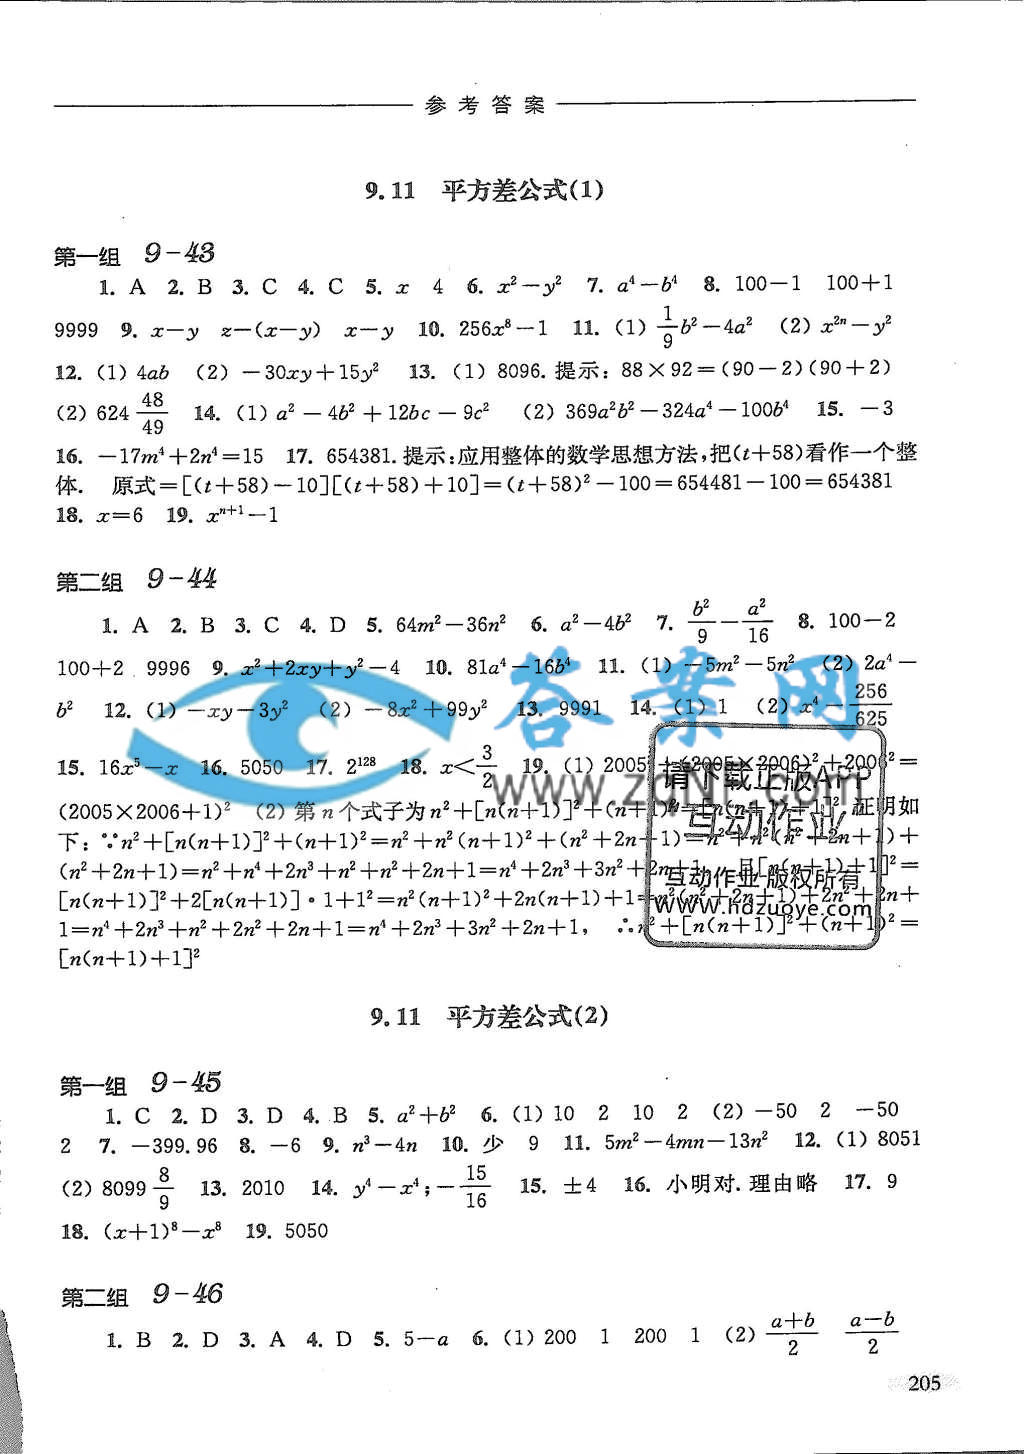 参考答案
9.11 平方差公式(1)
第一组 9-43
1. A 2. B 3. C 4. C 5. x 4 6. x²-y² 7. a⁴-b⁴ 8. 100-1 100+1
9999 9. x-y z-(x-y) x-y 10. 256x⁸-1 11. (1) 1/9 b²-4a² (2) x²ⁿ-y²
12. (1) 4ab (2) -30xy+15y² 13. (1) 8096.提示:88×92=(90-2)(90+2)
(2) 624 48/49 14. (1) a²-4b²+12bc-9c² (2) 369a²b²-324a⁴-100b⁴ 15. -3
16. -17m⁴+2n⁴=15 17. 654381.提示:应用整体的数学思想方法,把(t+58)看作一个整
体. 原式=[(t+58)-10][(t+58)+10]=(t+58)²-100=654481-100=654381
18. x=6 19. xⁿ⁺¹-1
第二组 9-44
1. A 2. B 3. C 4. D 5. 64m²-36n² 6. a²-4b² 7. b²/9-a²/16 8. 100-2
100+2 9996 9. x²+2xy+y²-4 10. 81a⁴-16b⁴ 11. (1) -5m²-5n² (2) 2a⁴-
b² 12. (1) -xy-3y² (2) -8x²+99y² 13. 9991 14. (1) 1 (2) x⁴-256/625
15. 16x⁵-x 16. 5050 17. 2¹²⁸ 18. x<3/2 19. (1) 2005²+(2005×2006)²+2006²=
(2005×2006+1)² (2) 第n个式子为n²+[n(n+1)]²+(n+1)²=[n(n+1)+1]².证明如
下:∵n²+[n(n+1)]²+(n+1)²=n²+n²(n+1)²+(n²+2n+1)=n²+n²(n²+2n+1)+
(n²+2n+1)=n²+n⁴+2n³+n²+n²+2n+1=n⁴+2n³+3n²+2n+1, 且[n(n+1)+1]²=
[n(n+1)]²+2[n(n+1)]·1+1²=n²(n+1)²+2n(n+1)+1=n²(n²+2n+1)+2n²+2n+
1=n⁴+2n³+n²+2n²+2n+1=n⁴+2n³+3n²+2n+1, ∴n²+[n(n+1)]²+(n+1)²=
[n(n+1)+1]²
答案网
请下载正版APP
互动作业
互动作业 版权所有
www.hdzuoye.com
9.11 平方差公式(2)
第一组 9-45
1. C 2. D 3. D 4. B 5. a²+b² 6. (1) 10 2 10 2 (2) -50 2 -50
2 7. -399.96 8. -6 9. n³-4n 10. 少 9 11. 5m²-4mn-13n² 12. (1) 8051
(2) 8099 8/9 13. 2010 14. y⁴-x⁴;-15/16 15. ±4 16. 小明对.理由略 17. 9
18. (x+1)⁸-x⁸ 19. 5050
第二组 9-46
1. B 2. D 3. A 4. D 5. 5-a 6. (1) 200 1 200 1 (2) a+b/2 a-b/2
205